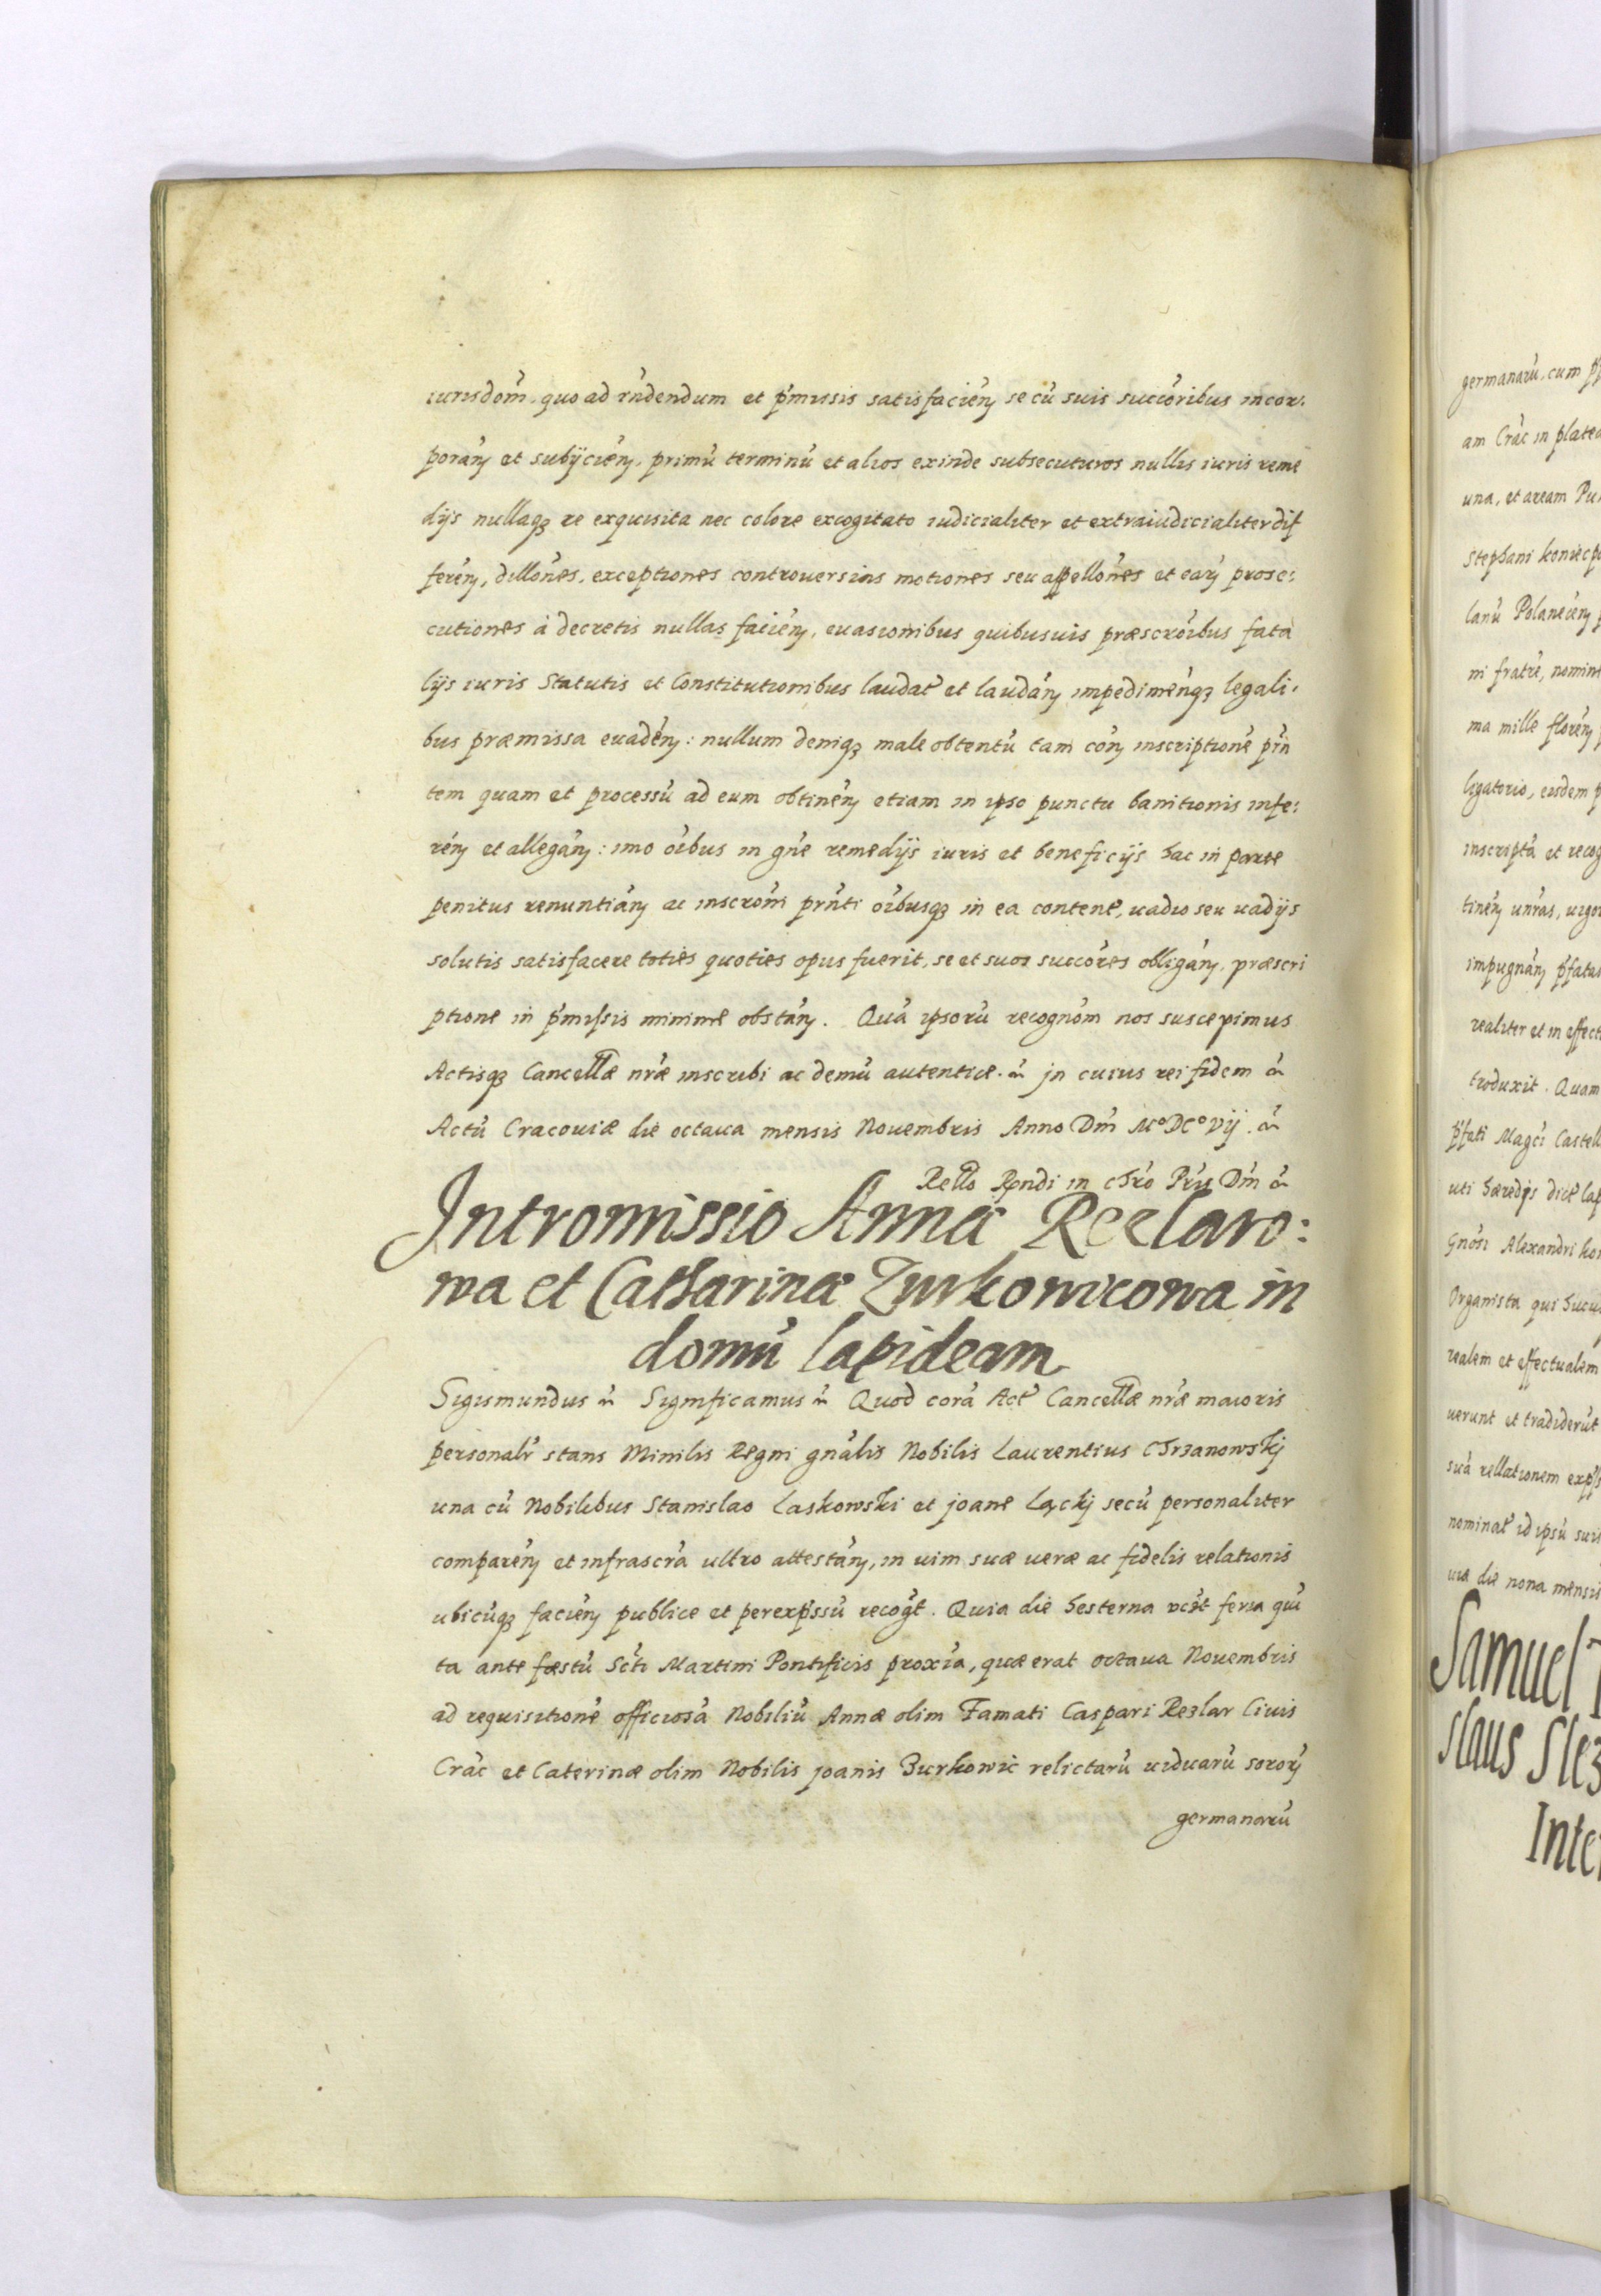 iurisdom̃, quo ad rñdendum et p̃missis satisfacień se cũ suis succõribus incor:
porań et subijcień, primũ terminũ et alios exinde subsecuturos nullis iuris reme
dijs nullaqꝫ re exquisita nec colore excogitato iudicialiter et extraiudicialiter dif
fereń, dillões, exceptiones controversias motiones seu appellões et earũ prose:
cutiones à decretis nullas facień, euasionibus quibusuis præscrõibus fata
lijs iuris Statutis et Constitutionibus laudat̃ et laudań impedimeñqꝫ legali:
bus præmissa euadeń: nullum deniqꝫ male obtentũ tam coń inscriptionẽ prñ
tem quam et processũ ad eum obtineń etiam in ipso punctu banitionis infe:
reń et allegań: imo oĩbus in gñe remedijs iuris et beneficijs hac in parte
penitus renuntiań ac inscrõni prñti oĩbusqꝫ in ea content̃, vadio seu vadijs
solutis satisfacere toties quoties opus fuerit, se et suos succõres obligań, præscri
ptione in p̃missis minime obstań. Quã ipsorũ recognõm nos suscepimus
Actisqꝫ Cancellæ nrãe inscribi ac demũ autenticæ. ñ jn cuius rei fidem ñ
Actũ Cracouiæ die octaua mensis Nouembris Anno Dm̃ M°DC°Vij. ñ
Rello Rṇdi in chrõ Prĩs Dm̃ ñ
Intromissio Annæ Rezlaro:
wa et Catharinæ Zurkowicowa in
domũ lapideam
Sigismundus ñ Significamus ñ Quod corã Act̃ Cancellæ nrãe maioris
personalr̃ stans Minilis Regni gnãlis Nobilis Laurentius Chrzanowskj
una cũ Nobilibus Stanislao Laskowski et joane Lęckj secũ personaliter
compareń et infrascrã ultro attestań, in uim suæ ueræ ac fidelis relationis
ubicũqꝫ facień publice et perexp̃ssũ recog̃t. Quia die hesterna vcꝫt feria quĩ
ta ante fæstũ Scĩ Martini Pontificis proxĩa, quæ erat octaua Nouembris
ad requisitionẽ officiosã Nobiliũ Annæ olim Famati Caspari Rezlar Ciuis
Crãc et Caterinæ olim Nobilis joanis Zurkowic relictarũ viduarũ sororũ
germanarũ
germanarũ, cum
am Crãc in platea
una, et aream
Stephani
lanũ Polanecień
ni fratrẽ,
ma mille floreń
ligatorio, eisdem
inscripta et
tineń
impugnań p̃fatas
realiter et in
troduxit. Quam
p̃fati Magcĩ
uti hæredes dict̃
Gnõsi Alexandri
Organista qui
realem et effectualem
uerunt et tradiderũt
suã rellationem
nominat̃ id ipsũ
uia die nona mensis
Samuel
slaus